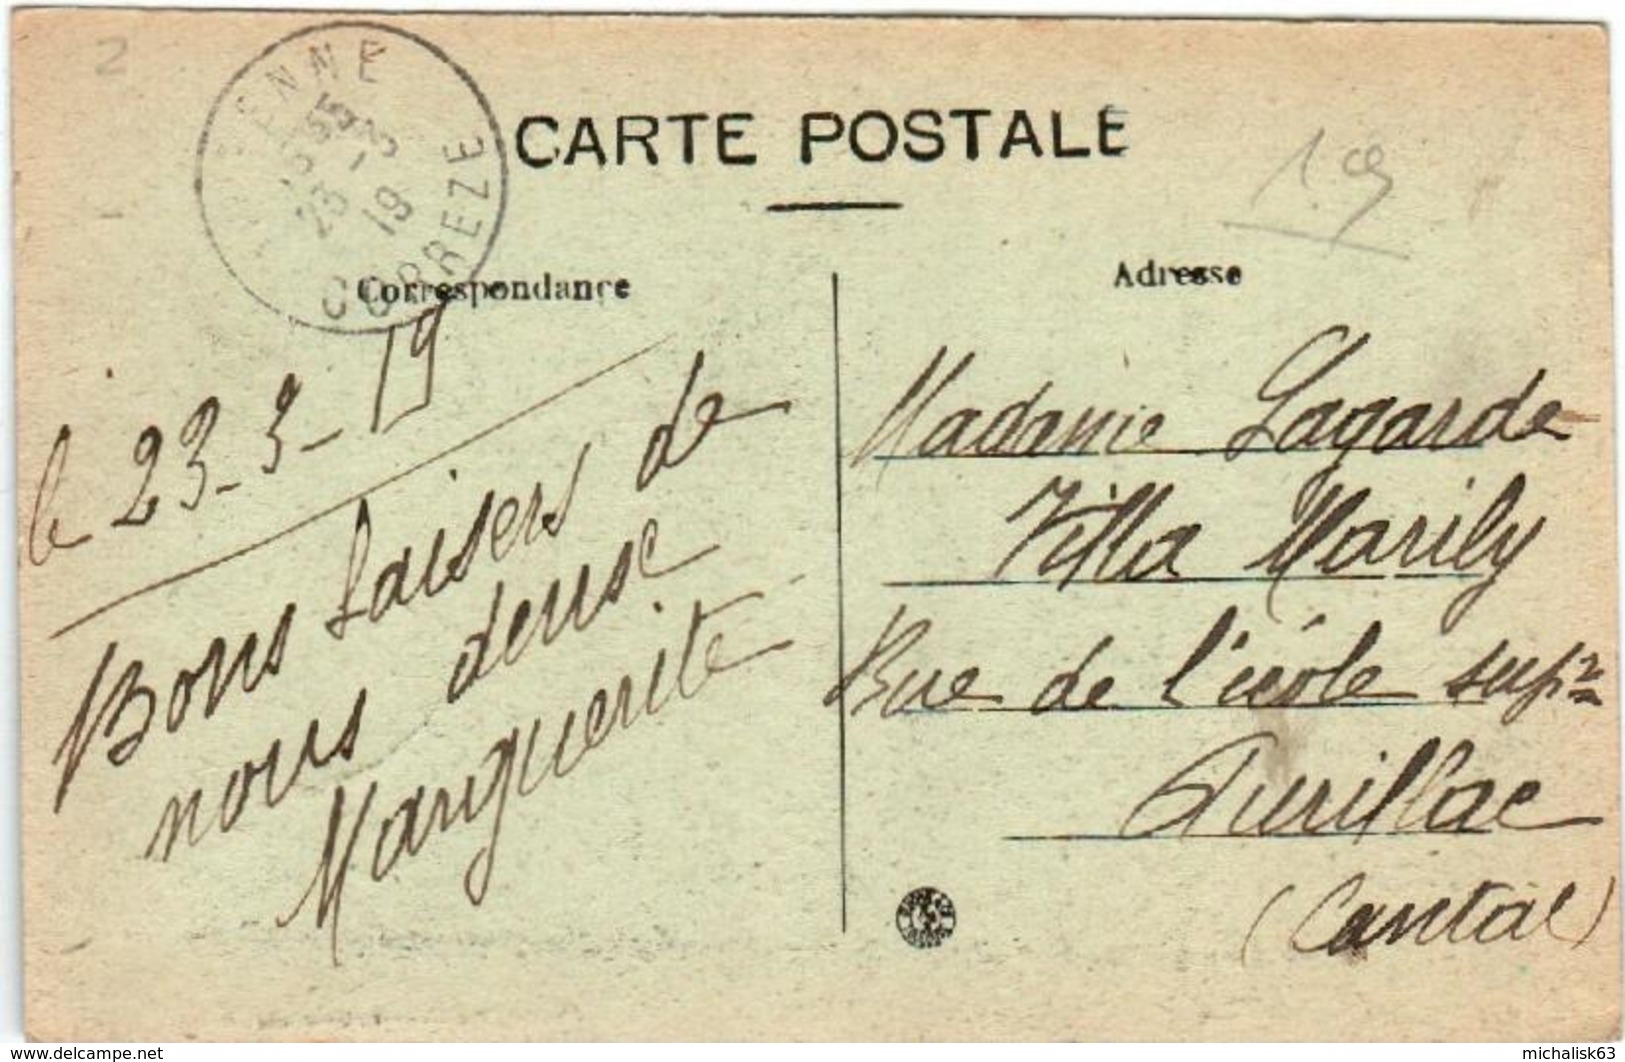 2
CORREZE
1855
23 -3
19
CARTE POSTALE
Correspondance
Adresse
le 23-3-19
Bons baisers de
nous deux
Marguerite
Madame Lagarde
Villa Marily
Rue de l'école supre
Aurillac
(Cantal)
www.delcampe.net
michalisk63